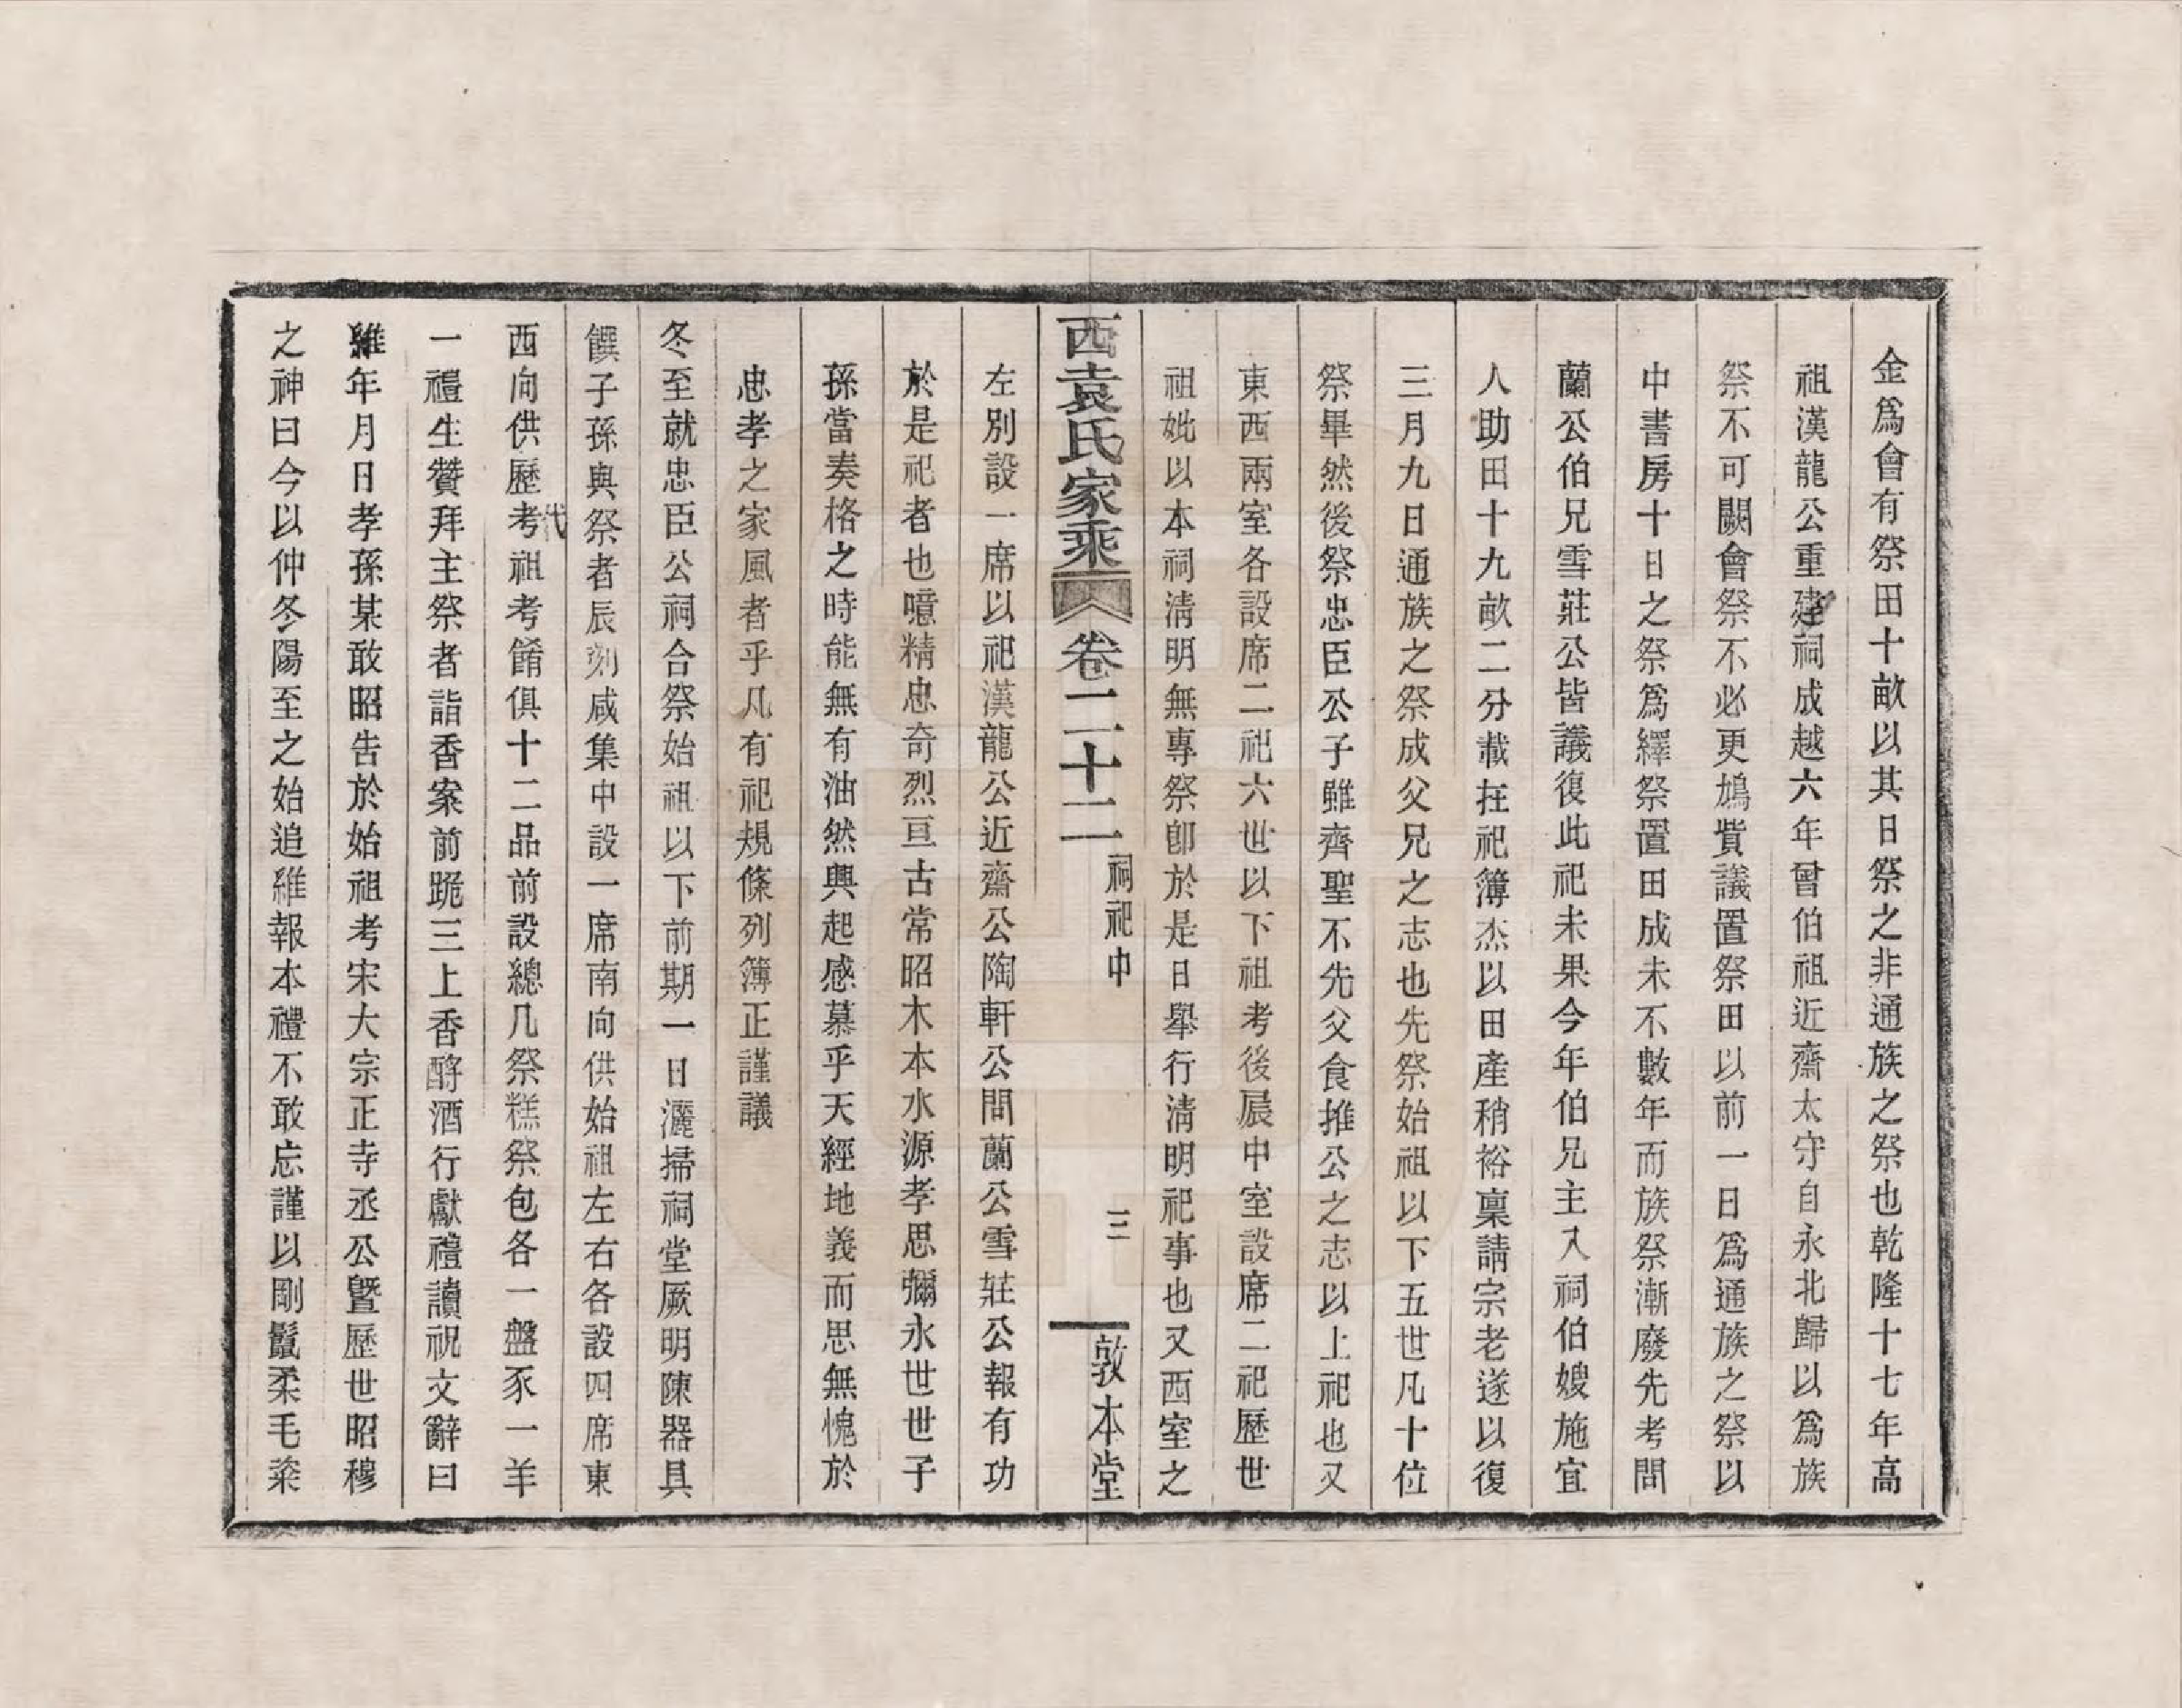 金爲會有祭田十畝以其日祭之非通族之祭也乾隆十七年高
祖漢龍公重建祠成越六年曾伯祖近齋太守自永北歸以爲族
祭不可闕會祭不必更鳩貲議置祭田以前一日爲通族之祭以
中書房十日之祭爲繹祭置田成未不數年而族祭漸廢先考問
蘭公伯兄雪莊公皆議復此祀未果今年伯兄主入祠伯嫂施宜
人助田十九畝二分載在祀簿杰以田產稍裕稟請宗老遂以復
三月九日通族之祭成父兄之志也先祭始祖以下五世凡十位
祭畢然後祭忠臣公子雖齊聖不先父食推公之志以上祀也又
東西兩室各設席二祀六世以下祖考後扆中室設席二祀歷世
祖妣以本祠淸明無專祭卽於是日舉行淸明祀事也又西室之
西袁氏家乘 卷二十二 祠祀中 三 敦本堂
左別設一席以祀漢龍公近齋公陶軒公問蘭公雪莊公報有功
於是祀者也噫精忠奇烈亘古常昭木本水源孝思彌永世世子
孫當奏格之時能無有油然興起感慕乎天經地義而思無愧於
忠孝之家風者乎凡有祀規條列簿正謹議
冬至就忠臣公祠合祭始祖以下前期一日灑掃祠堂厥明陳器具
饌子孫與祭者辰刻咸集中設一席南向供始祖左右各設四席東
西向供歷代考祖考餚俱十二品前設總几祭糕祭包各一盤豕一羊
一禮生贊拜主祭者詣香案前跪三上香酹酒行獻禮讀祝文辭曰
維年月日孝孫某敢昭告於始祖考宋大宗正寺丞公曁歷世昭穆
之神曰今以仲冬陽至之始追維報本禮不敢忘謹以剛鬣柔毛粢